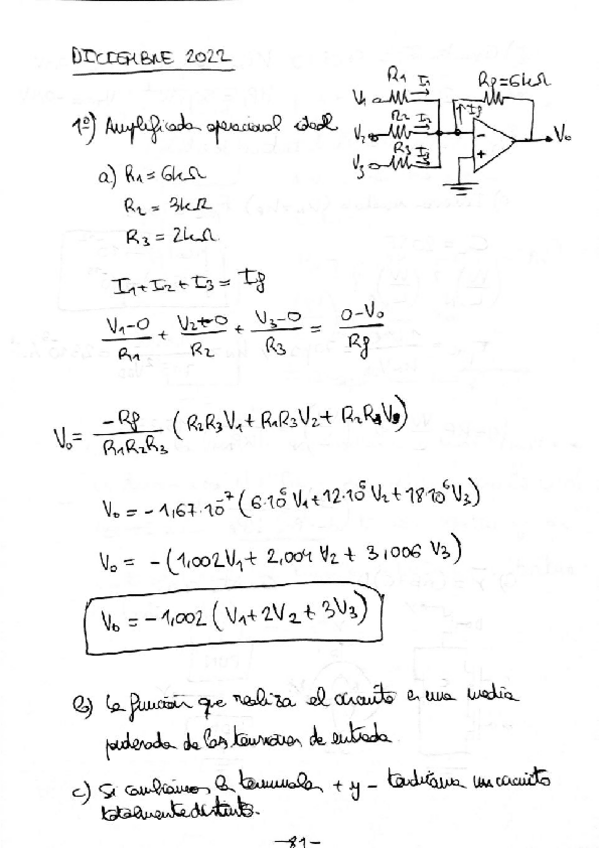 DICIEMBRE 2022
R1 I1 Rf=6kΩ
V1
R2 I2 If
V2 - V0
R3 I3 +
V3
1º) Amplificador operacional ideal
a) R1 = 6kΩ
R2 = 3kΩ
R3 = 2kΩ
I1+I2+I3 = If
V1-0/R1 + V2-0/R2 + V3-0/R3 = 0-V0/Rf
V0 = -Rf/R1R2R3 (R2R3V1 + R1R3V2 + R2R1V3)
V0 = -1,67·10^-7 (6·10^6 V1 + 12·10^6 V2 + 18·10^6 V3)
V0 = -(1,002V1 + 2,004 V2 + 3,006 V3)
V0 = -1,002 (V1+2V2+3V3)
b) La función que realiza el circuito es una media
ponderada de las tensiones de entrada.
c) Si cambiamos los terminales + y - tendríamos un circuito
totalmente distinto.
-81-